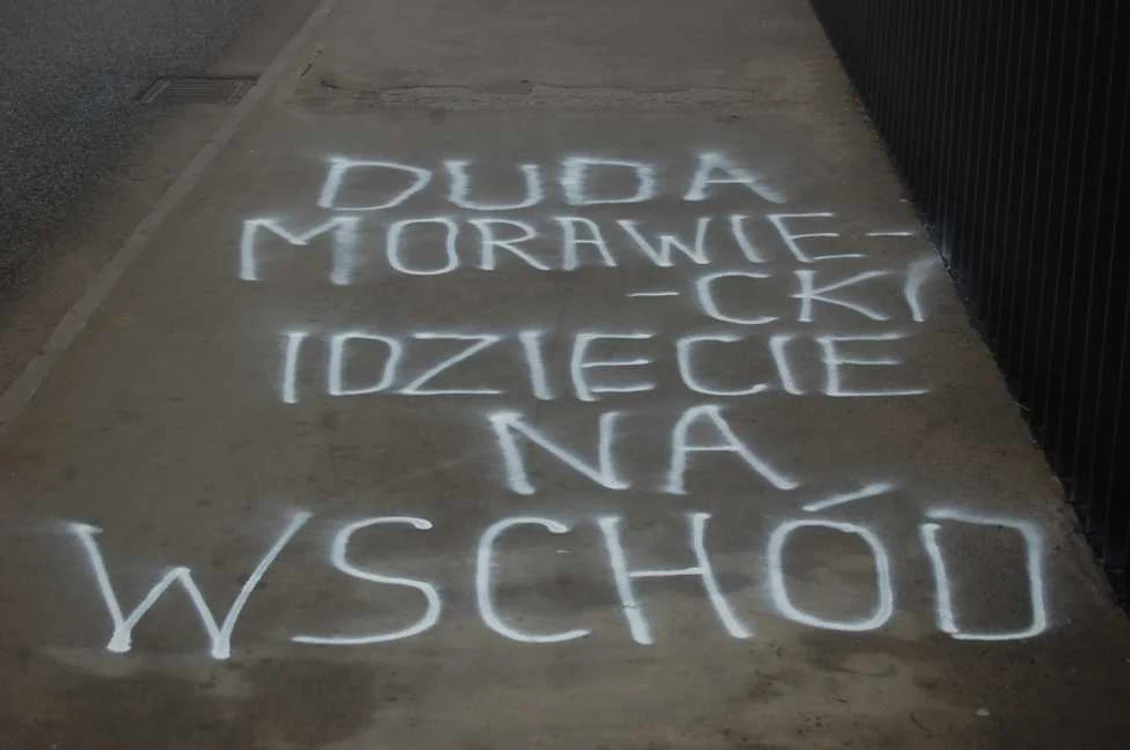 DUDA
MORAWIE-
-CKI
IDZIECIE
NA
WSCHÓD